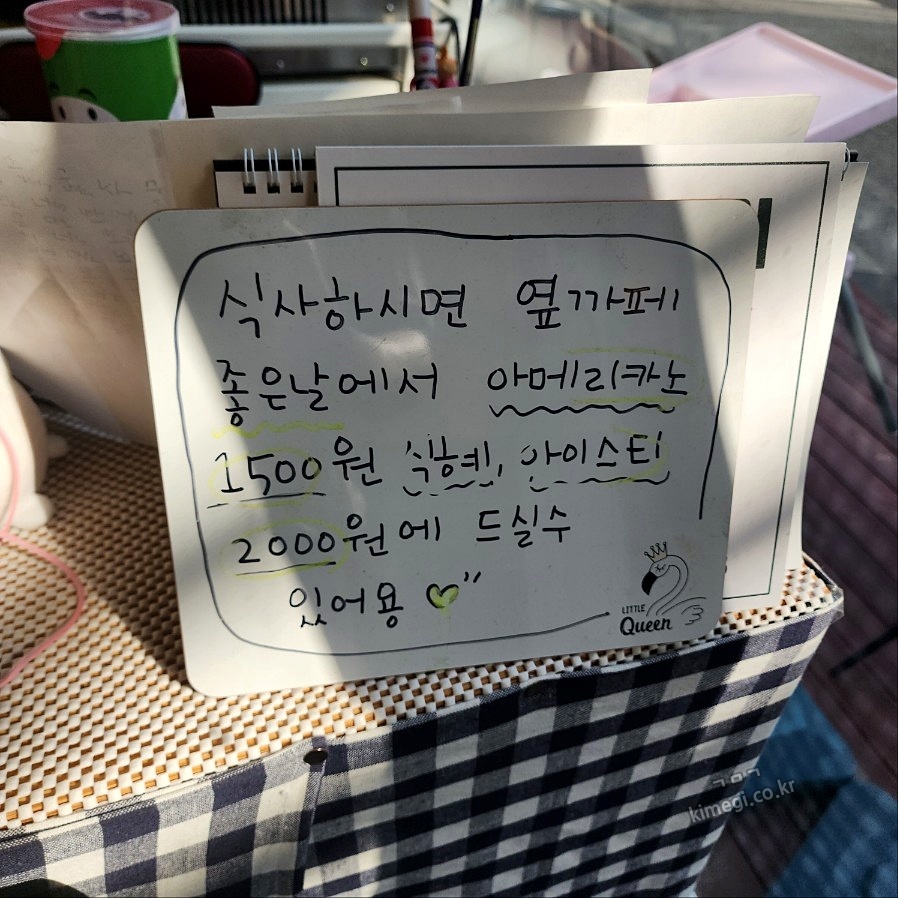 식사하시면 옆까페
좋은날에서 아메리카노
1500원 식혜, 아이스티
2000원에 드실수
있어용 ♡"
LITTLE
Queen
ㄱㅁㄱ
kimegi.co.kr